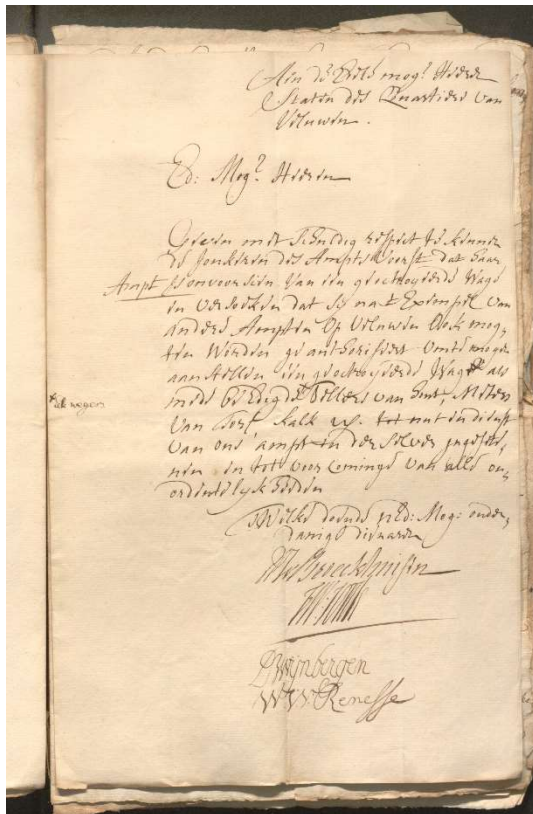 Aen de Edele mog: Heeren
Staten des Quartiers van
Veluwen.
Ed: Mog: Heeren
Geven met schuldig respect te kennen
de Jonkeren des Ampts Voorst dat haar
Ampt is onvoorsien van een geoctroyeerde Wage
en versoeken dat sij na t Exempel van
andere Ampten op Veluwen Oock mog,
ten Worden geauthoriseert omte mogen
aanstellen een geoctroyeerde Wage als
mede beedigde Tellers van hout, Meters
van Torf Kalk etc. tot nut en dienst
van ons ampt en der selver ingeseete,
nen en tot voor cominge van alle on,
ordentelyk heeden
T Welke doende U Ed: Mog: onder,
danige dienaaren
wegen
Wijnbergen
W V Renesse